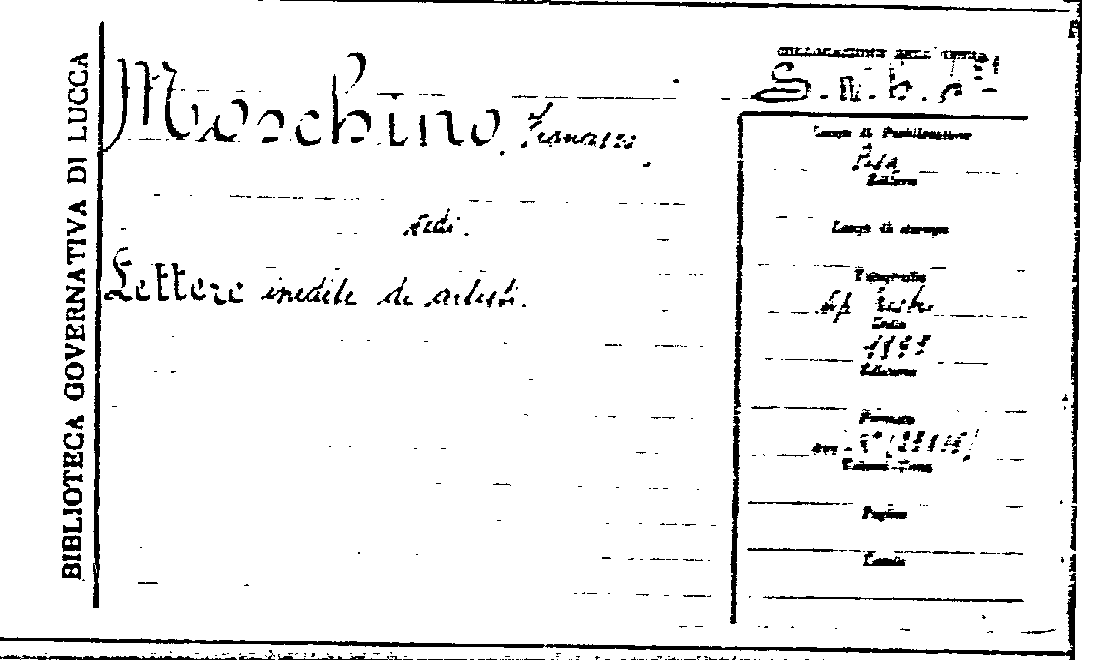 BIBLIOTECA GOVERNATIVA DI LUCCA
Moschino, Francesco.
vedi.
Lettere inedite di artisti.
COLLOCAZIONE DELL'OPERA
Luogo di Pubblicazione
Pisa
Editore
Luogo di stampa
Tipografia
Data
Edizione
Formato
Volumi-Tomi
Pagine
Tavole